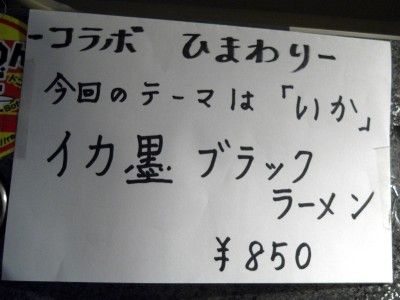 -コラボ ひまわり-
今回のテーマは「いか」
イカ墨 ブラック
ラーメン
¥850